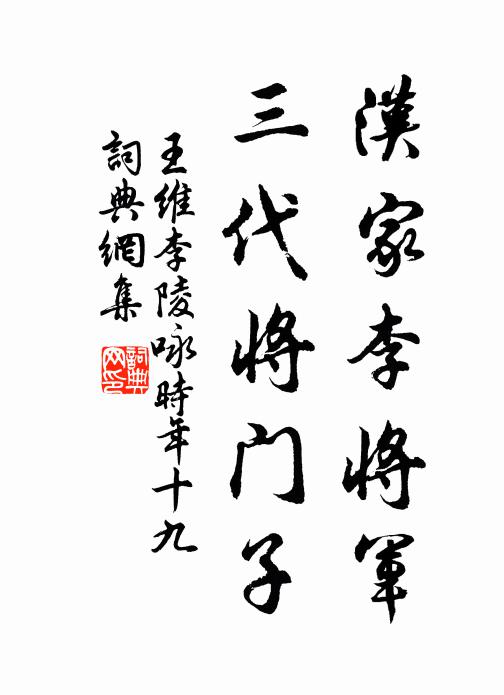 漢家李將軍
三代將门子
王維李陵咏時年十九
詞典網集
詞典网印